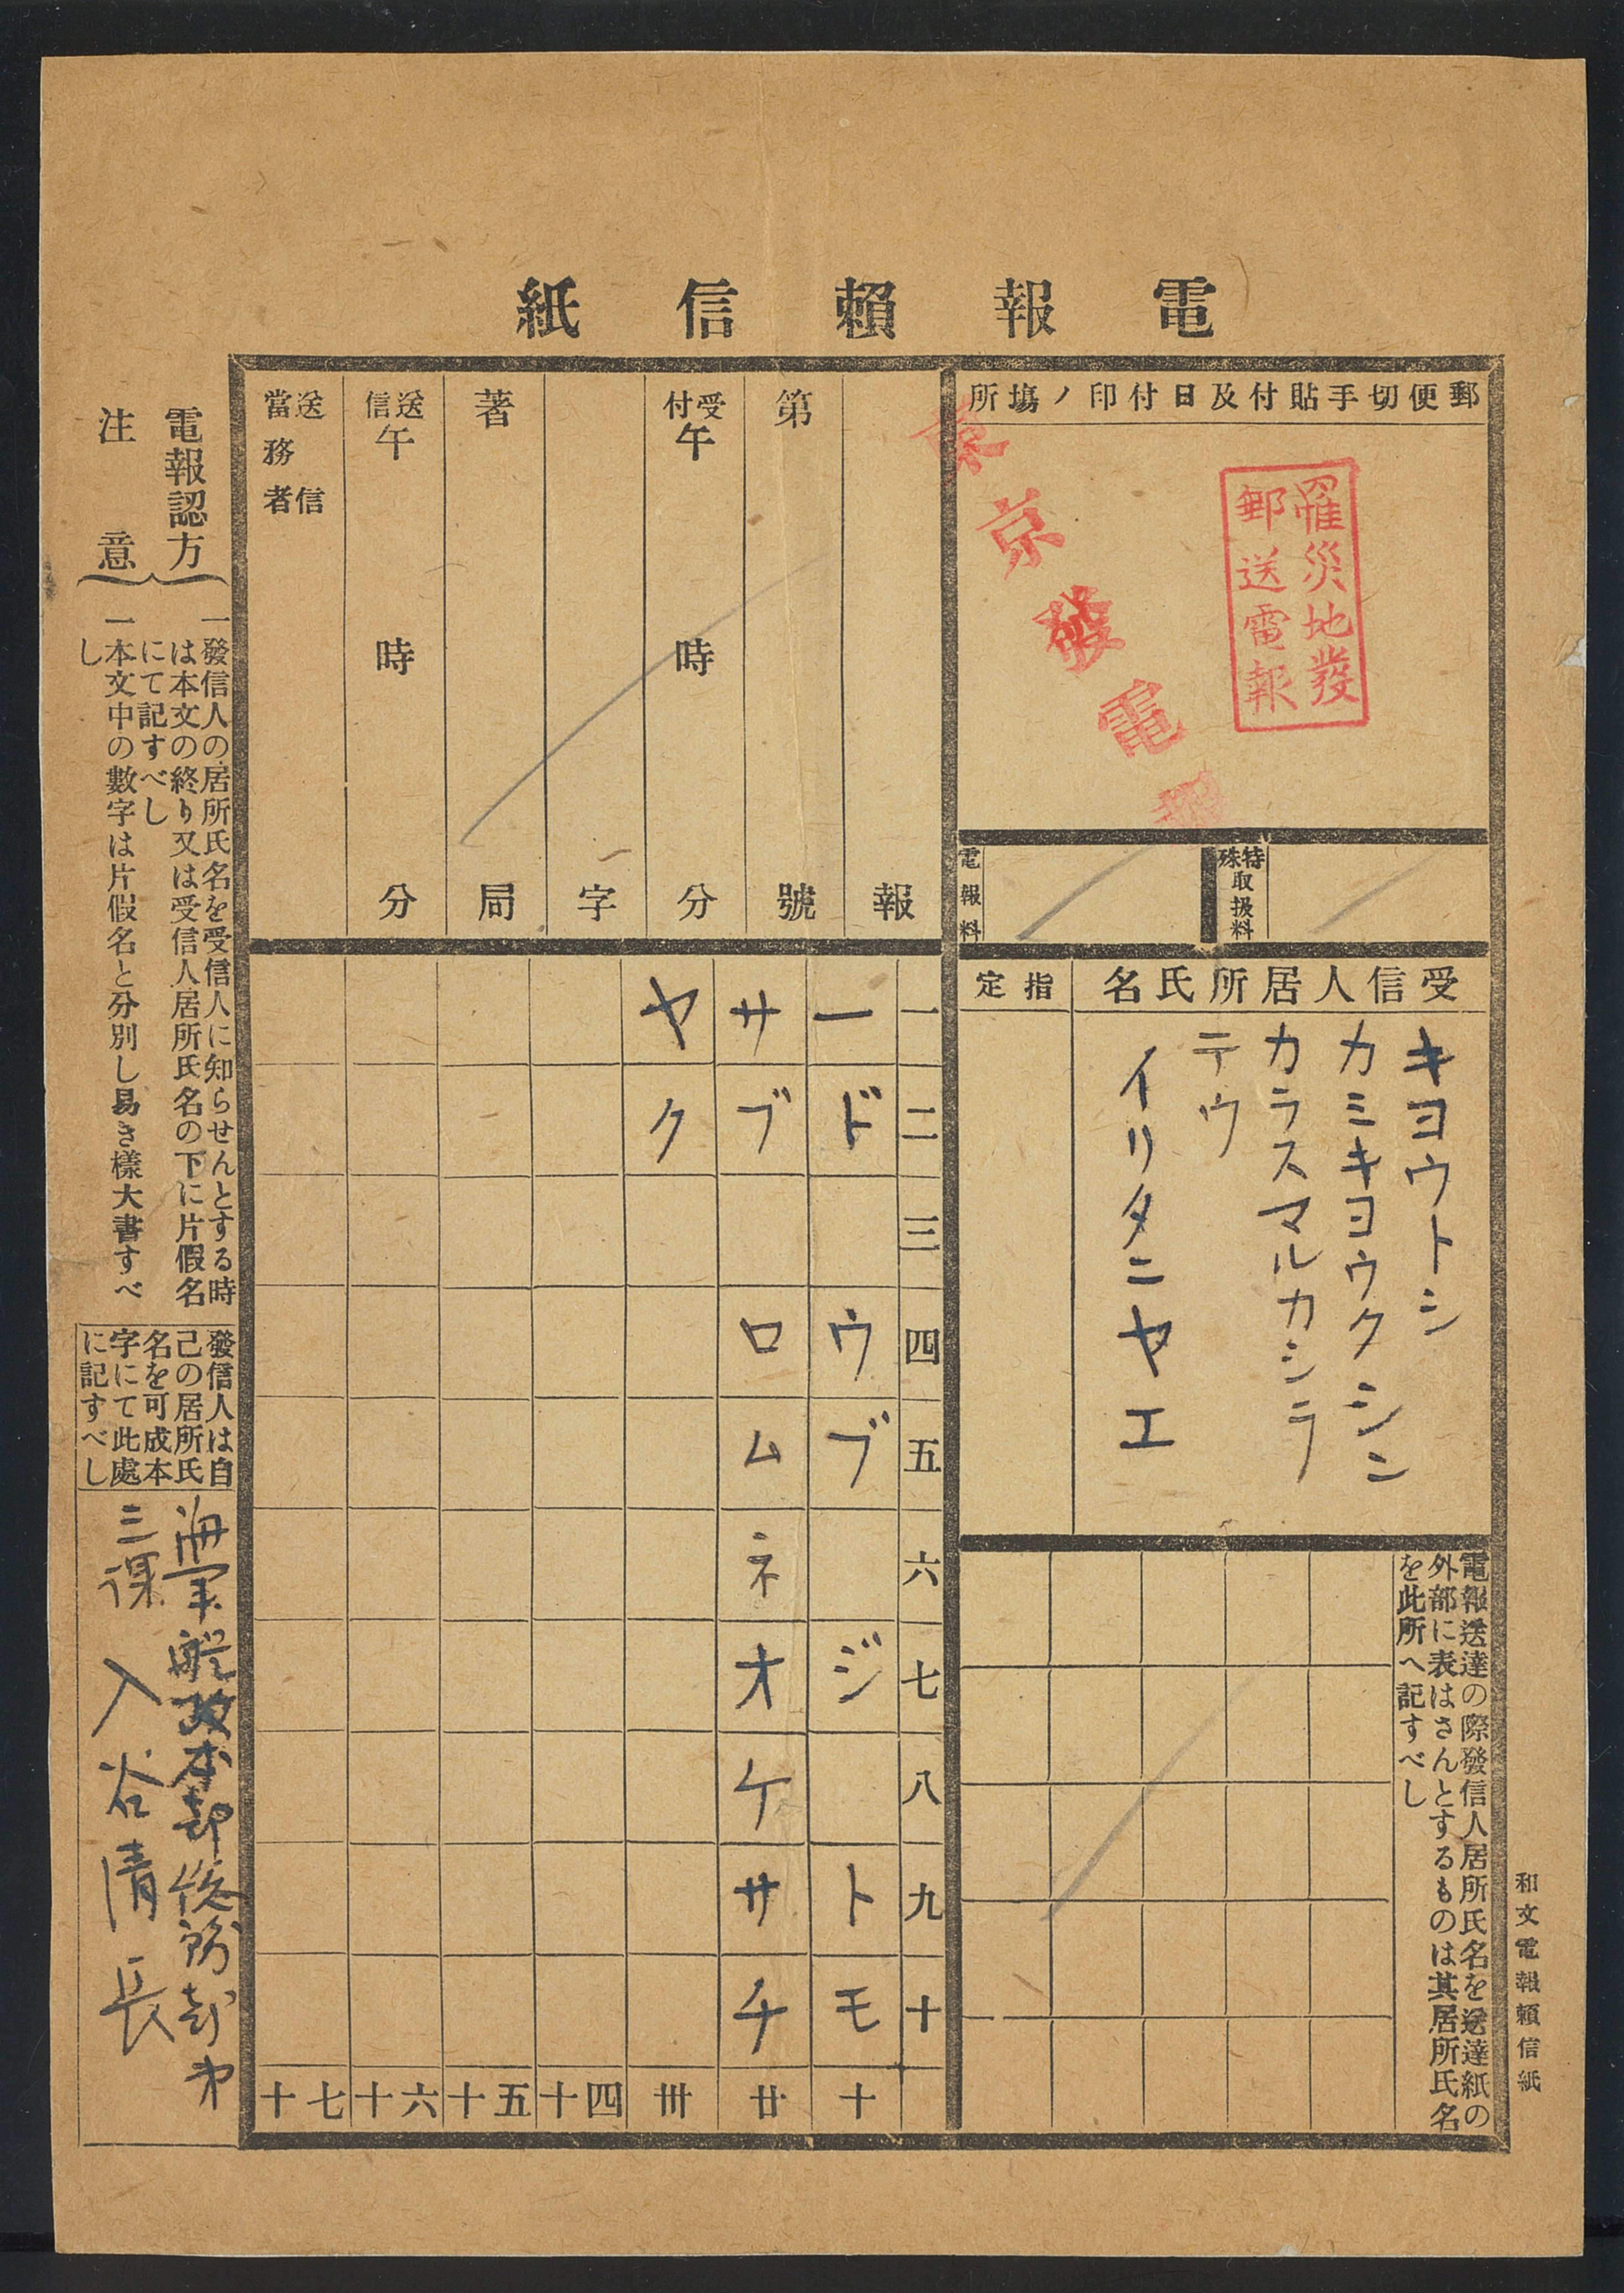 電報頼信紙
郵便切手貼付及日付印ノ場所
罹災地發
郵送電報
京
發
電
特殊取扱料
電報料
受信人居所氏名
指定
キヨウトシ
カミキヨウクシン
カラスマルカシラ
テウ
イリタニヤエ
電報送達の際發信人居所氏名を送達紙の
外部に表はさんとするものは其居所氏名
を此所へ記すべし
報
第 號
受付 午 時 分
字
著 局
送信 午 時 分
送信
當務者
一 二 三 四 五 六 七 八 九 十
一ド ウブ ジ トモ
サブ ロムネオケサチ
ヤク
十 廿 卅 十四 十五 十六 十七
電報認方
注意
一發信人の居所氏名を受信人に知らせんとする時
は本文の終り又は受信人居所氏名の下に片假名
にて記すべし
一本文中の數字は片假名と分別し易き樣大書すべ
し
發信人は自
己の居所氏
名を可成本
字にて此處
に記すべし
海軍艦政本部總務部第
三課 入谷清長
和文電報頼信紙